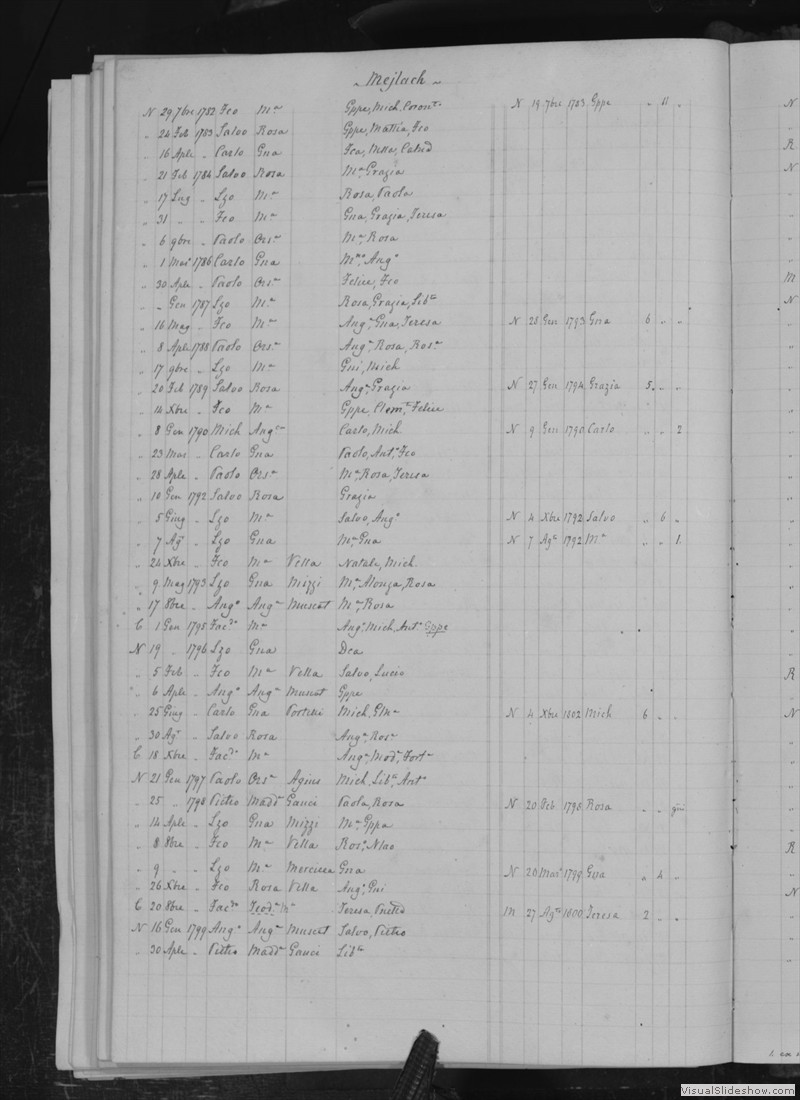 ~ Mejlach ~
N 29 7bre 1782 Fco Ma Gppe, Mich, Coronta N 19 7bre 1783 Gppe " 11 "
" 24 Feb 1783 Salvo Rosa Gppe, Mattia, Fco
" 16 Aple " Carlo Gna Fca,
" 21 Feb 1784 Salvo Rosa Ma Grazia
" 17 Lug " Lzo Ma Rosa, Paola
" 31 " " Fco Ma Gna, Grazia, Teresa
" 6 9bre " Paolo Orsa Ma Rosa
" 1 Mar 1786 Carlo Gna Ango
" 30 Aple " Paolo Orsa Felice, Fco
" " Gen 1787 Lzo Ma Rosa, Grazia, Liba
" 16 Mag " Fco Ma Anga Gna, Teresa N 28 Gen 1793 Gna 6 " "
" 8 Aple 1788 Paolo Orsa Anga Rosa, Rosa
" 17 9bre " Lzo Ma Gni, Mich
" 20 Feb 1789 Salvo Rosa Anga Grazia N 27 Gen 1794 Grazia 5 " "
" 14 Xbre " Fco Ma Gppe, Clema, Felice
" 8 Gen 1790 Mich Anga Carlo, Mich N 9 Gen 1790 Carlo " " 2
" 23 Mar " Carlo Gna Paolo, Anto, Fco
" 28 Aple " Paolo Orsa Ma Rosa, Teresa
" 10 Gen 1792 Salvo Rosa Grazia
" 5 Giug " Lzo Ma Salvo, Ango N 4 Xbre 1792 Salvo " 6 "
" 7 Ago " Lzo Gna Ma Gna N 7 Ago 1792 Ma " " 1
" 24 Xbre " Fco Ma Vella Natale, Mich
" 9 Mag 1793 Lzo Gna Mizzi Ma Alonza, Rosa
" 17 8bre " Ango Anga Muscat Ma Rosa
C 1 Gen 1795 Ma Ango Mich, Anto Gppe
N 19 " 1796 Lzo Gna Dca
" 5 Feb " Fco Ma Vella Salvo, Lucio
" 6 Aple " Ango Anga Muscat Gppe
" 25 Giug " Carlo Gna Portelli Mich, N 4 Xbre 1802 Mich 6 " "
" 30 Ago " Salvo Rosa Anga, Rosa
C 18 Xbre " Ma Anga,
N 21 Gen 1797 Paolo Orsa Agius Mich, Liba, Anta
" 25 " 1798 Pietro Madda Gauci Paola, Rosa N 20 Feb 1798 Rosa " " gni
" 14 Aple " Lzo Gna Mizzi Ma Gppa
" 8 8bre " Fco Ma Vella Rosa, Nlao
" 9 " " Lzo Ma Mercieca Gna N 20 Mar 1799 Gna " 4 "
" 26 Xbre " Fco Rosa Vella Anga, Gni
C 20 8bre " Teoda Ma Teresa, M 27 Ago 1800 Teresa 2 " "
N 16 Gen 1799 Ango Anga Muscat Salvo, Pietro
" 30 Aple " Pietro Madda Gauci Liba
N
R
N
M
N
R
N
R
N
VisualSlideshow.com